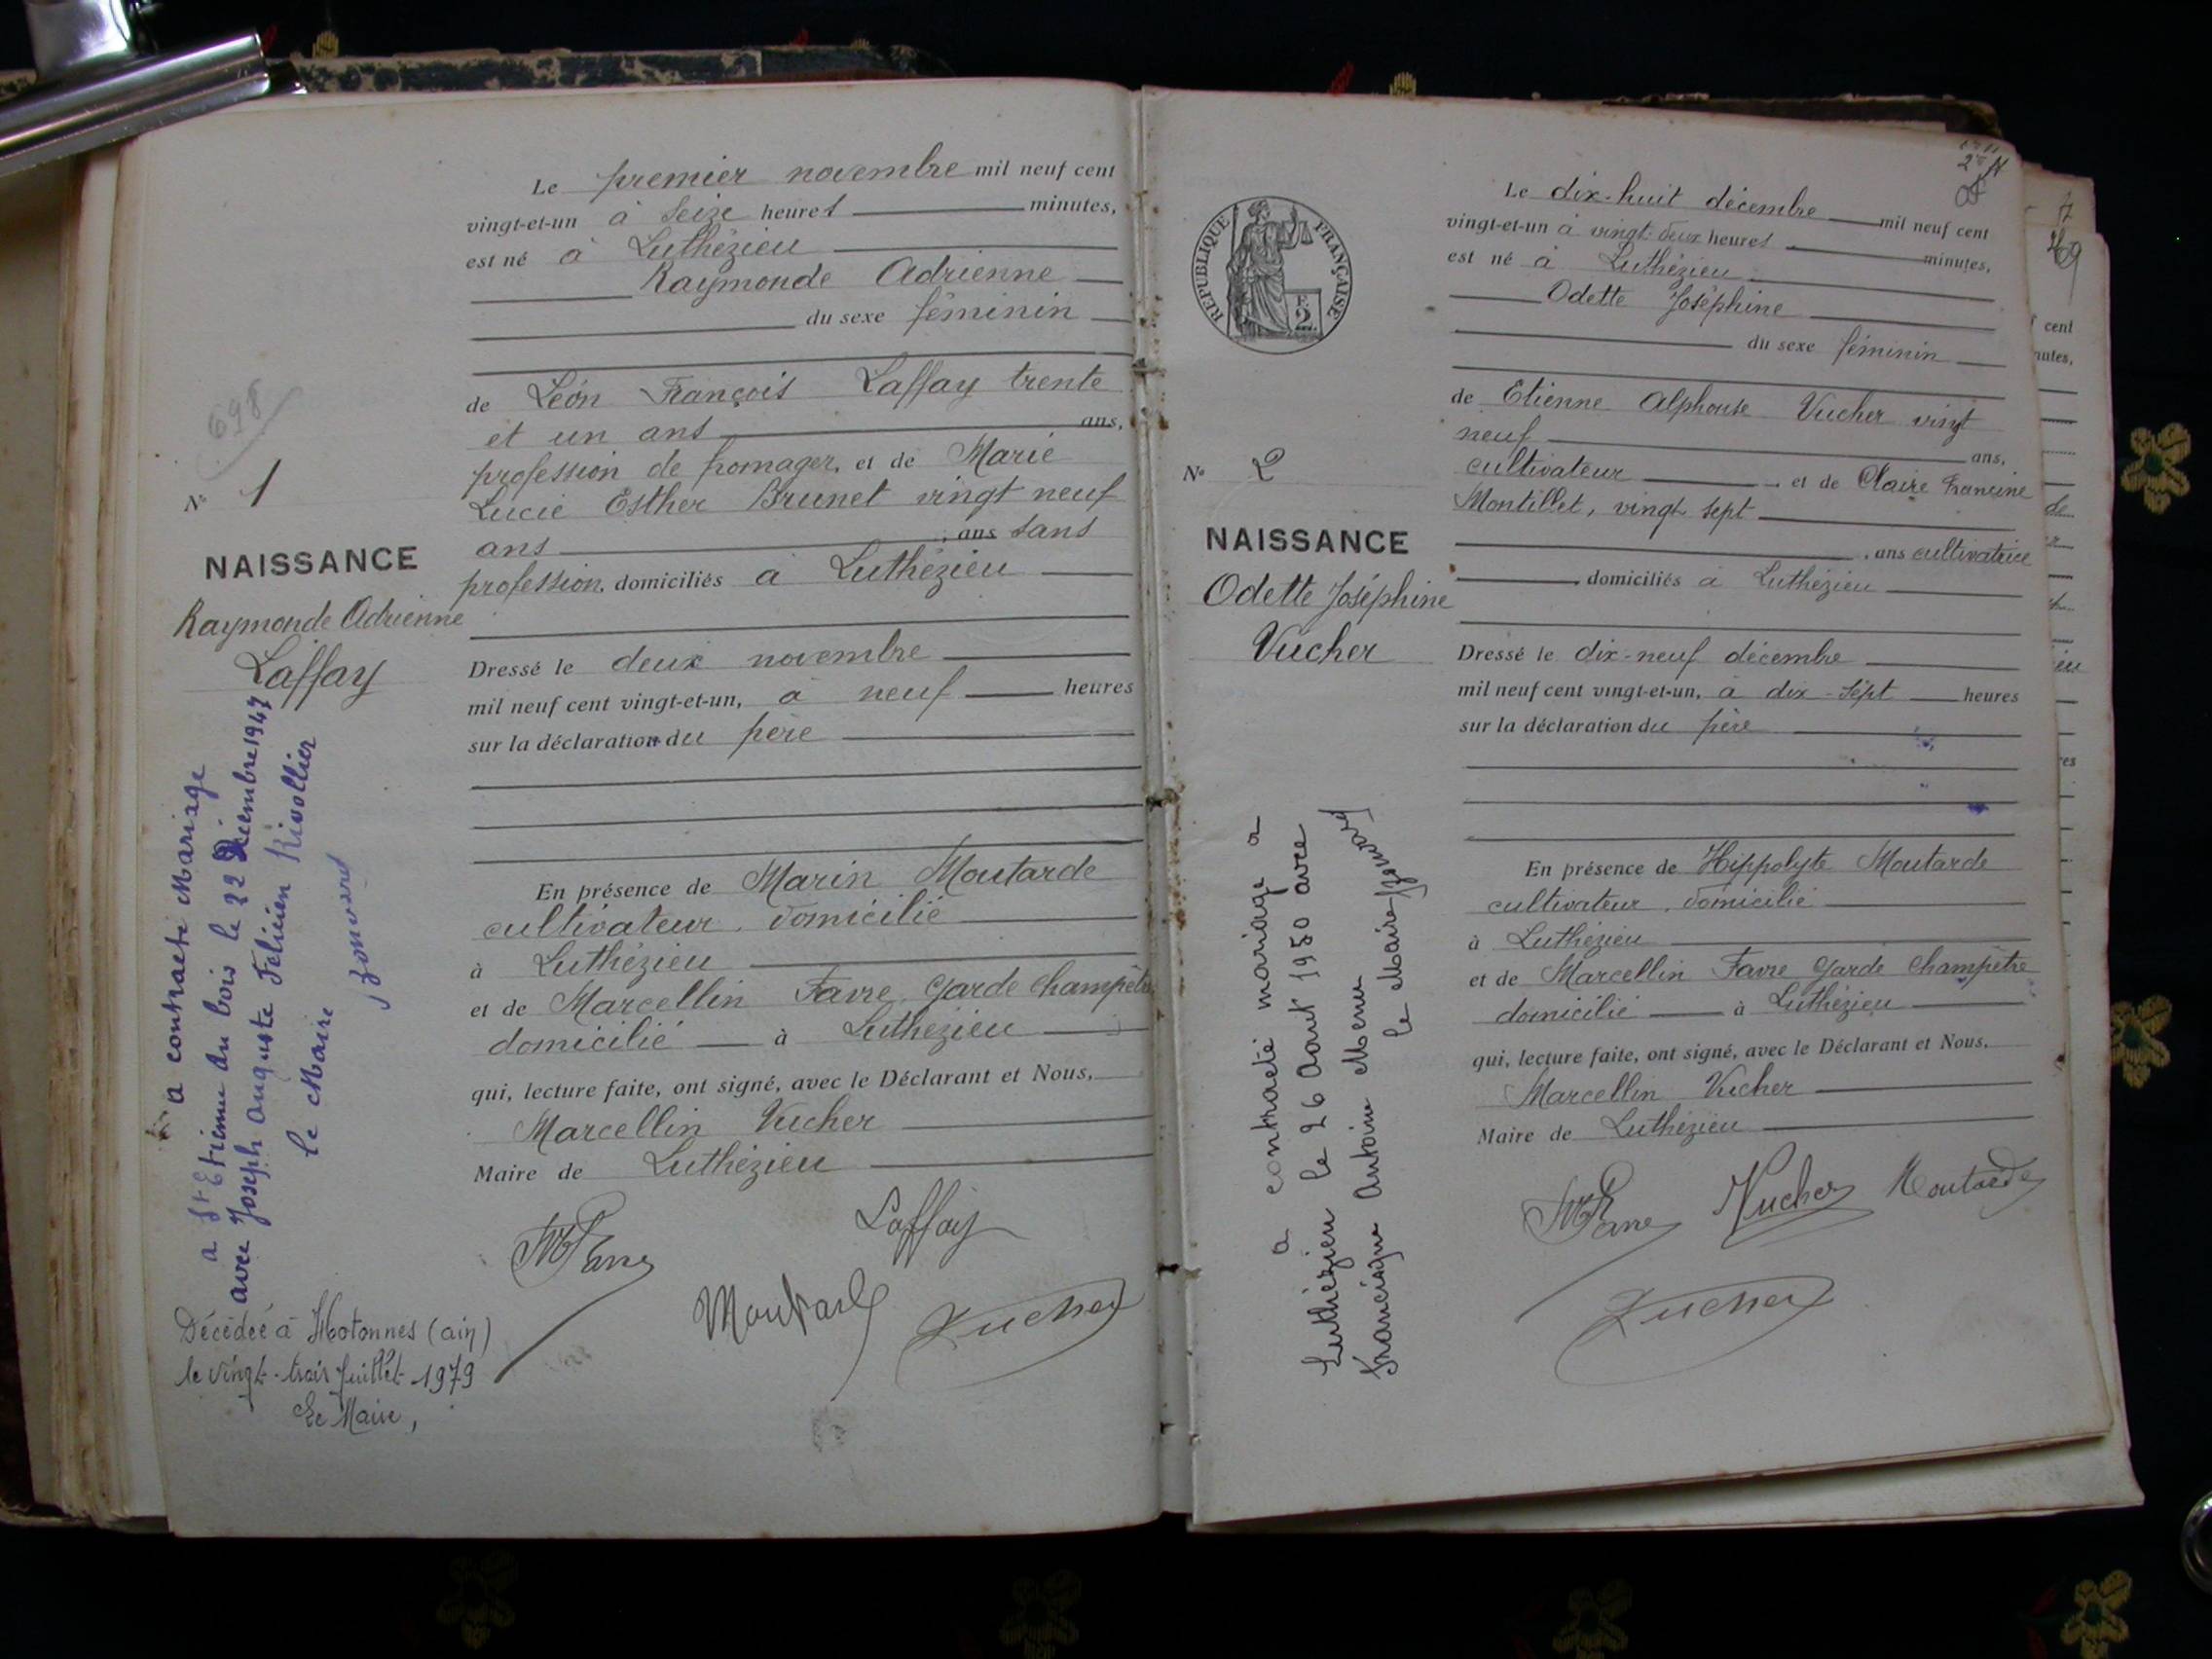 698
N° 1
NAISSANCE
Raymonde Adrienne
Laffay
a contracté Mariage
a St Etienne du bois le 22 Décembre 1947
avec Joseph Auguste Félicien Rivollier
le Maire
Décédée à Hotonnes (ain)
le vingt-trois juillet 1979
Le Maire,
Le premier novembre mil neuf cent
vingt-et-un à seize heures minutes,
est né à Luthézieu
Raymonde Adrienne
du sexe féminin
de Léon François Laffay trente
et un ans ans,
profession de fromager, et de Marie
Lucie Esther Brunet vingt neuf
ans , ans sans
profession, domiciliés à Luthézieu
Dressé le deux novembre
mil neuf cent vingt-et-un, à neuf heures
sur la déclaration du père
En présence de Marin Moutarde
cultivateur, domicilié
à Luthézieu
et de Marcellin Favre, garde champêtre
domicilié à Luthézieu
qui, lecture faite, ont signé, avec le Déclarant et Nous,
Marcellin Vucher
Maire de Luthézieu
Laffay
Moutarde
Vucher
RÉPUBLIQUE FRANÇAISE
F.
2
N° 2
NAISSANCE
Odette Joséphine
Vucher
a contracté mariage a
Luthézieu le 26 Aout 1950 avec
Francisque Antoine
le Maire
Le dix-huit décembre mil neuf cent
vingt-et-un à vingt-deux heures minutes,
est né à Luthézieu
Odette Joséphine
du sexe féminin
de Etienne Alphonse Vucher vingt
neuf ans,
cultivateur , et de Claire Francine
Montillet, vingt sept
, ans cultivatrice
, domiciliés à Luthézieu
Dressé le dix-neuf décembre
mil neuf cent vingt-et-un, à dix-sept heures
sur la déclaration du père
En présence de Hippolyte Moutarde
cultivateur, domicilié
à Luthézieu
et de Marcellin Favre garde champêtre
domicilié à Luthézieu
qui, lecture faite, ont signé, avec le Déclarant et Nous,
Marcellin Vucher
Maire de Luthézieu
Vucher Moutarde
Vucher
cent